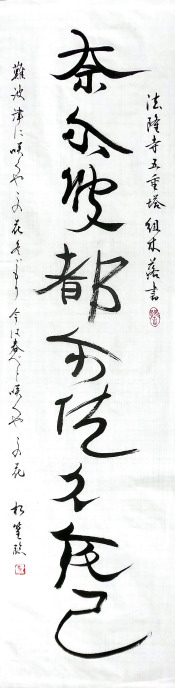 法隆寺五重塔 組木 落書
奈尓波都尓佐久夜己
難波津に咲くやこの花冬ごもり 今は春べと咲くやこの花